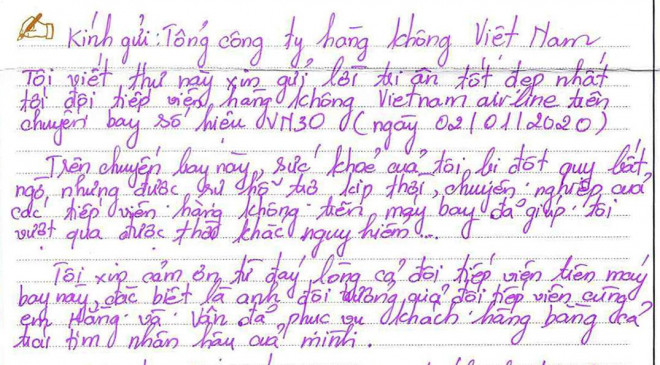 Kính gửi: Tổng công ty hàng không Việt Nam
Tôi viết thư này xin gửi lời tri ân tốt đẹp nhất
tới đội tiếp viên hàng không Vietnam airline trên
chuyến bay số hiệu VN30 (ngày 02/01/2020)
Trên chuyến bay này, sức khoẻ của tôi bị đột quỵ bất
ngờ, nhưng được sự hỗ trợ kịp thời, chuyên nghiệp của
các tiếp viên hàng không trên máy bay đã giúp tôi
vượt qua được thời khắc nguy hiểm...
Tôi xin cảm ơn từ đáy lòng cả đội tiếp viên trên máy
bay này, đặc biệt là anh đội trưởng quả đội tiếp viên cùng
em Hằng và Vân đã phục vụ khách hàng bằng cả
trái tim nhân hậu của mình.